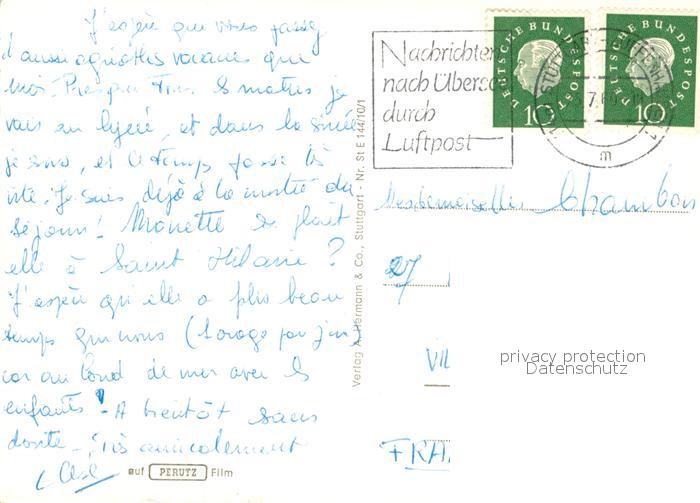 J'espère que vous passez
d'aussi agréables vacances que
moi. Presque tous les matins je
vais au lycée, et dans la soirée
je sors, et le temps passe très
vite. Je suis déjà à la moitié du
séjour! Monette se plaît
elle à Saint Hilaire?
J'espère qu'elle a plus beau
temps que nous (1 orage par jour)
car au bord de mer avec les
enfants! A bientôt sans
doute - Très amicalement
auf PERUTZ Film
Verlag A. Hermann & Co., Stuttgart - Nr. St E 144/10/1
Nachrichten
nach Übersee
durch
Luftpost
DEUTSCHE BUNDESPOST
10
DEUTSCHE BUNDESPOST
10
m
Mesdemoiselles Chambon
27
VIL
privacy protection
Datenschutz
FRA